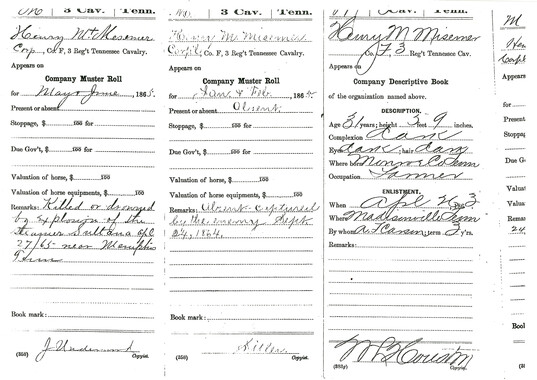 3 Cav. Tenn.
Henry M
Corp., Co. F, 3 Reg't Tennessee Cavalry.
Appears on
Company Muster Roll
for May & June, 1865.
Present or absent
Stoppage, $ 100 for
Due Gov't, $ 100
Valuation of horse, $ 100
Valuation of horse equipments, $ 100
Remarks: Killed or drowned
by explosion of the
steamer Sultana Apl
27/65 near Memphis
Tenn
Book mark:
J. Underwood
(359) Copyist.
3 Cav. Tenn.
Henry M. Misemer
Corp'l, Co. F, 3 Reg't Tennessee Cavalry.
Appears on
Company Muster Roll
for Jan & Feb, 1865.
Present or absent Absent
Stoppage, $ 100 for
Due Gov't, $ 100
Valuation of horse, $ 100
Valuation of horse equipments, $ 100
Remarks: Absent captured
by the enemy Sept
24, 1864.
Book mark:
(359) Copyist.
3 Cav. Tenn.
Henry M Misemer
Co. F, 3 Reg't Tennessee Cav.
Appears on
Company Descriptive Book
of the organization named above.
DESCRIPTION.
Age 31 years; height 5 feet 9 inches.
Complexion dark
Eyes dark; hair dark
Where born Monroe C. Tenn
Occupation
ENLISTMENT.
When Apl 2, 1863.
Where Madisonville Tenn
By whom; term 3 y'rs.
Remarks:
Houston
(383g) Copyist.
M
Hen
Corpl
Appears
for
Present
Stoppage
Due Gov
Valuati
Valuati
Remark
24,
Book
(35